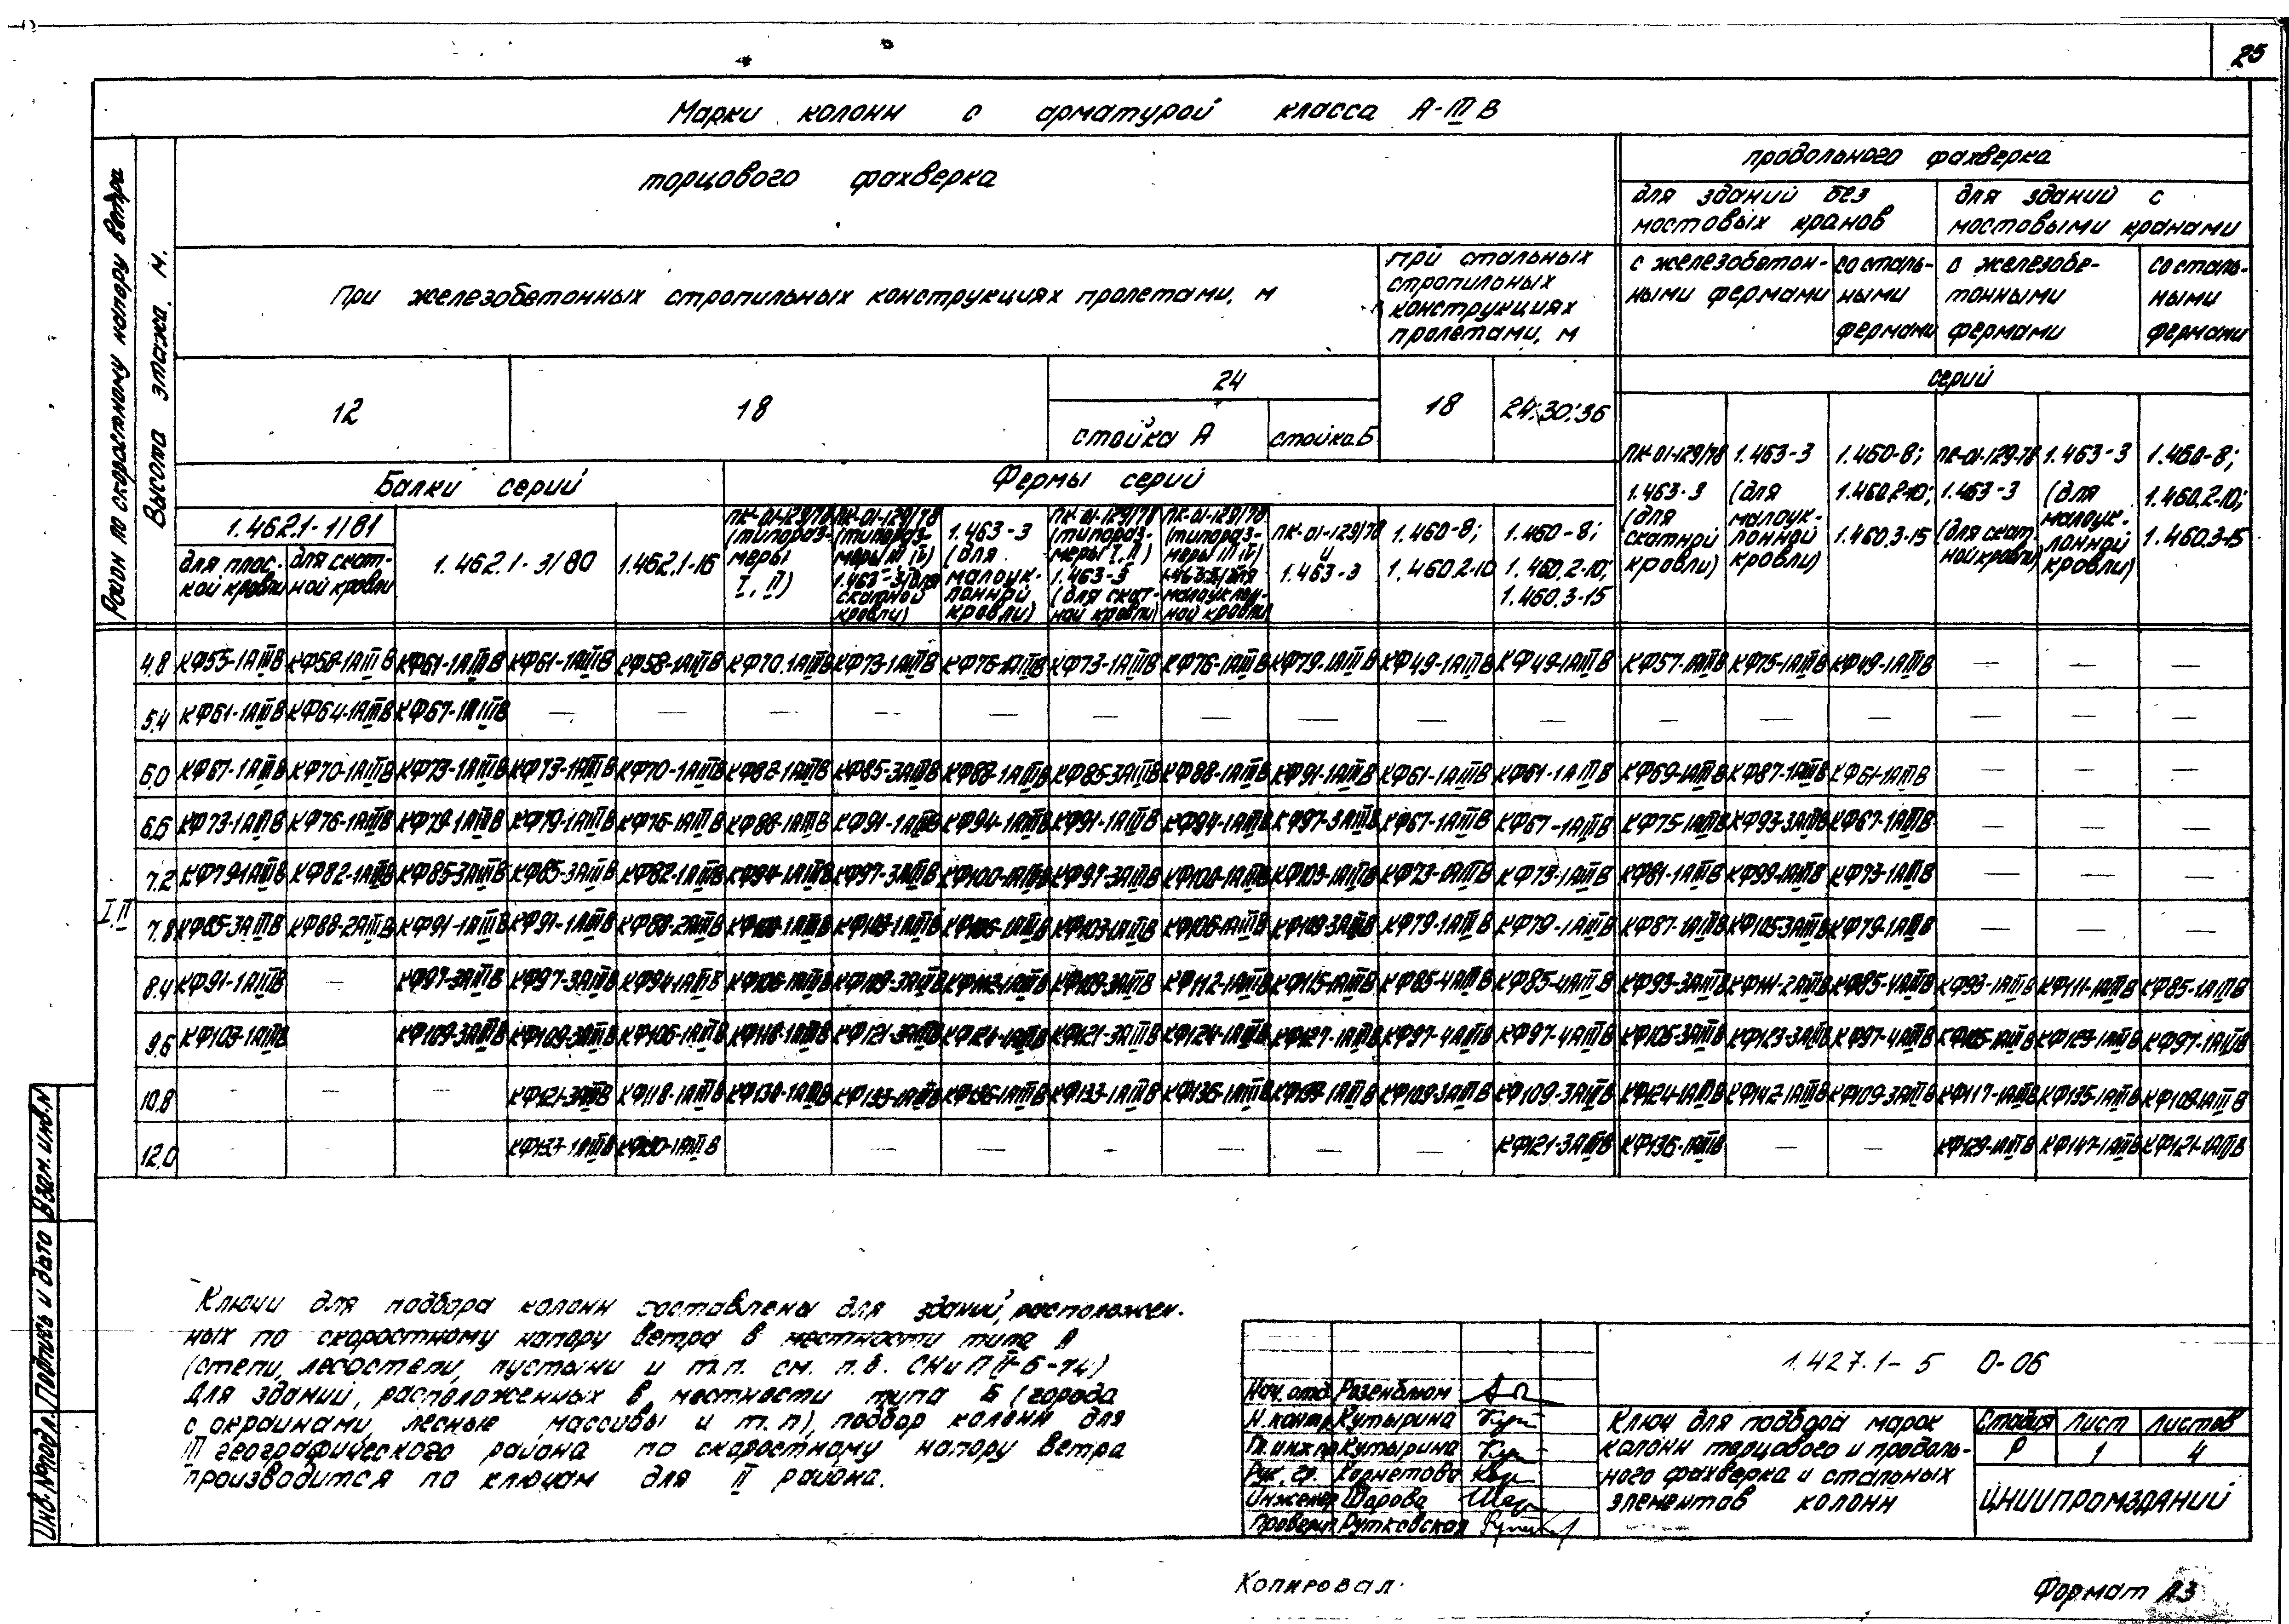 25
Марки колонн с арматурой класса А-III В
Район по скоростному напору ветра
Высота этажа, м.
торцового фахверка
продольного фахверка
для зданий без мостовых кранов
для зданий с мостовыми кранами
При железобетонных стропильных конструкциях пролетами, м
при стальных стропильных конструкциях пролетами, м
с железобетонными фермами
со стальными фермами
с железобетонными фермами
со стальными фермами
12
18
24
стойка А
стойка Б
18
24; 30; 36
серий
Балки серий
Фермы серий
1.462.1-1/81
для плоской кровли
для скатной кровли
1.462.1-3/80
1.462.1-16
ПК-01-129/78 (типоразмеры I, II)
ПК-01-129/78 (типоразмеры III IV) 1.463-3/для скатной кровли)
1.463-3 (для малоуклонной кровли)
ПК-01-129/78 (типоразмеры I, II) 1.463-3 (для скатной кровли)
ПК-01-129/78 (типоразмеры III IV) 1.463-3/для малоуклонной кровли)
ПК-01-129/78 и 1.463-3
1.460-8; 1.460.2-10
1.460-8; 1.460.2-10; 1.460.3-15
ПК-01-129/78 1.463-3 (для скатной кровли)
1.463-3 (для малоуклонной кровли)
1.460-8; 1.460.2-10; 1.460.3-15
ПК-01-129-78 1.463-3 (для скатной кровли)
1.463-3 (для малоуклонной кровли)
1.460-8; 1.460.2-10; 1.460.3-15
I, II
4.8 КФ55-1АIIIВ КФ58-1АIIIВ КФ61-1АIIIВ КФ61-1АIIIВ КФ58-1АIIIВ КФ70-1АIIIВ КФ73-1АIIIВ КФ76-1АIIIВ КФ73-1АIIIВ КФ76-1АIIIВ КФ79-1АIIIВ КФ49-1АIIIВ КФ49-1АIIIВ КФ57-1АIIIВ КФ75-1АIIIВ КФ49-1АIIIВ — — —
5.4 КФ61-1АIIIВ КФ64-1АIIIВ КФ67-1АIIIВ — — — — — — — — — — — — — — — —
6.0 КФ67-1АIIIВ КФ70-1АIIIВ КФ73-1АIIIВ КФ73-1АIIIВ КФ70-1АIIIВ КФ82-1АIIIВ КФ85-3АIIIВ КФ88-1АIIIВ КФ85-3АIIIВ КФ88-1АIIIВ КФ91-1АIIIВ КФ61-1АIIIВ КФ61-1АIIIВ КФ69-1АIIIВ КФ87-1АIIIВ КФ61-1АIIIВ — — —
6.6 КФ73-1АIIIВ КФ76-1АIIIВ КФ79-1АIIIВ КФ79-1АIIIВ КФ76-1АIIIВ КФ88-1АIIIВ КФ91-1АIIIВ КФ94-1АIIIВ КФ91-1АIIIВ КФ94-1АIIIВ КФ97-3АIIIВ КФ67-1АIIIВ КФ67-1АIIIВ КФ75-1АIIIВ КФ93-3АIIIВ КФ67-1АIIIВ — — —
7.2 КФ79-1АIIIВ КФ82-1АIIIВ КФ85-3АIIIВ КФ85-3АIIIВ КФ82-1АIIIВ КФ94-1АIIIВ КФ97-3АIIIВ КФ100-1АIIIВ КФ97-3АIIIВ КФ100-1АIIIВ КФ103-1АIIIВ КФ73-1АIIIВ КФ73-1АIIIВ КФ81-1АIIIВ КФ99-1АIIIВ КФ73-1АIIIВ — — —
7.8 КФ85-3АIIIВ КФ88-2АIIIВ КФ91-1АIIIВ КФ91-1АIIIВ КФ88-2АIIIВ КФ100-1АIIIВ КФ103-1АIIIВ КФ106-1АIIIВ КФ103-1АIIIВ КФ106-1АIIIВ КФ109-3АIIIВ КФ79-1АIIIВ КФ79-1АIIIВ КФ87-1АIIIВ КФ105-3АIIIВ КФ79-1АIIIВ — — —
8.4 КФ91-1АIIIВ — КФ97-3АIIIВ КФ97-3АIIIВ КФ94-1АIIIВ КФ106-1АIIIВ КФ109-3АIIIВ КФ112-1АIIIВ КФ109-3АIIIВ КФ112-1АIIIВ КФ115-1АIIIВ КФ85-4АIIIВ КФ85-4АIIIВ КФ93-3АIIIВ КФ111-2АIIIВ КФ85-4АIIIВ КФ93-1АIIIВ КФ111-1АIIIВ КФ85-1АIIIВ
9.6 КФ103-1АIIIВ КФ109-3АIIIВ КФ109-3АIIIВ КФ106-1АIIIВ КФ118-1АIIIВ КФ121-3АIIIВ КФ124-1АIIIВ КФ121-3АIIIВ КФ124-1АIIIВ КФ127-1АIIIВ КФ97-4АIIIВ КФ97-4АIIIВ КФ105-3АIIIВ КФ123-3АIIIВ КФ97-4АIIIВ КФ105-1АIIIВ КФ123-1АIIIВ КФ97-1АIIIВ
10.8 — — — КФ121-3АIIIВ КФ118-1АIIIВ КФ130-1АIIIВ КФ133-1АIIIВ КФ136-1АIIIВ КФ133-1АIIIВ КФ136-1АIIIВ КФ139-1АIIIВ КФ109-3АIIIВ КФ109-3АIIIВ КФ124-1АIIIВ КФ142-1АIIIВ КФ109-3АIIIВ КФ117-1АIIIВ КФ135-1АIIIВ КФ109-1АIIIВ
12.0 — — — КФ133-1АIIIВ КФ130-1АIIIВ — — — — — — — КФ121-3АIIIВ КФ136-1АIIIВ — — КФ129-1АIIIВ КФ147-1АIIIВ КФ121-1АIIIВ
Ключи для подбора колонн составлены для зданий, расположен-
ных по скоростному напору ветра в местности типа А
(степи, лесостепи, пустыни и т.п. см. п.6. СНиП II-6-74)
Для зданий, расположенных в местности типа Б (города
с окраинами, лесные массивы и т.п), подбор колонн для
III географического района по скоростному напору ветра
производится по ключам для II района.
Инв.№подл. Подпись и дата Взам.инв.№
1.427.1-5 0-06
Нач. отд. Розенблюм
Н.контр. Кутырина
Гл.инж.пр. Кутырина
Рук. гр. Корнетова
Инженер Шарова
Проверил Рутковская
Ключ для подбора марок
колонн торцового и продоль-
ного фахверка и стальных
элементов колонн
Стадия Лист Листов
Р 1 4
ЦНИИПРОМЗДАНИЙ
Копировал
Формат А3